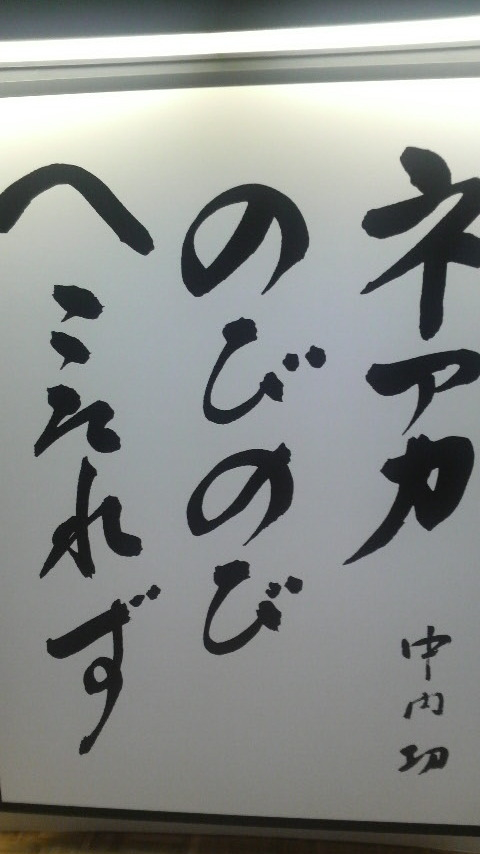 ネアカ
中内功
のびのび
へこたれず